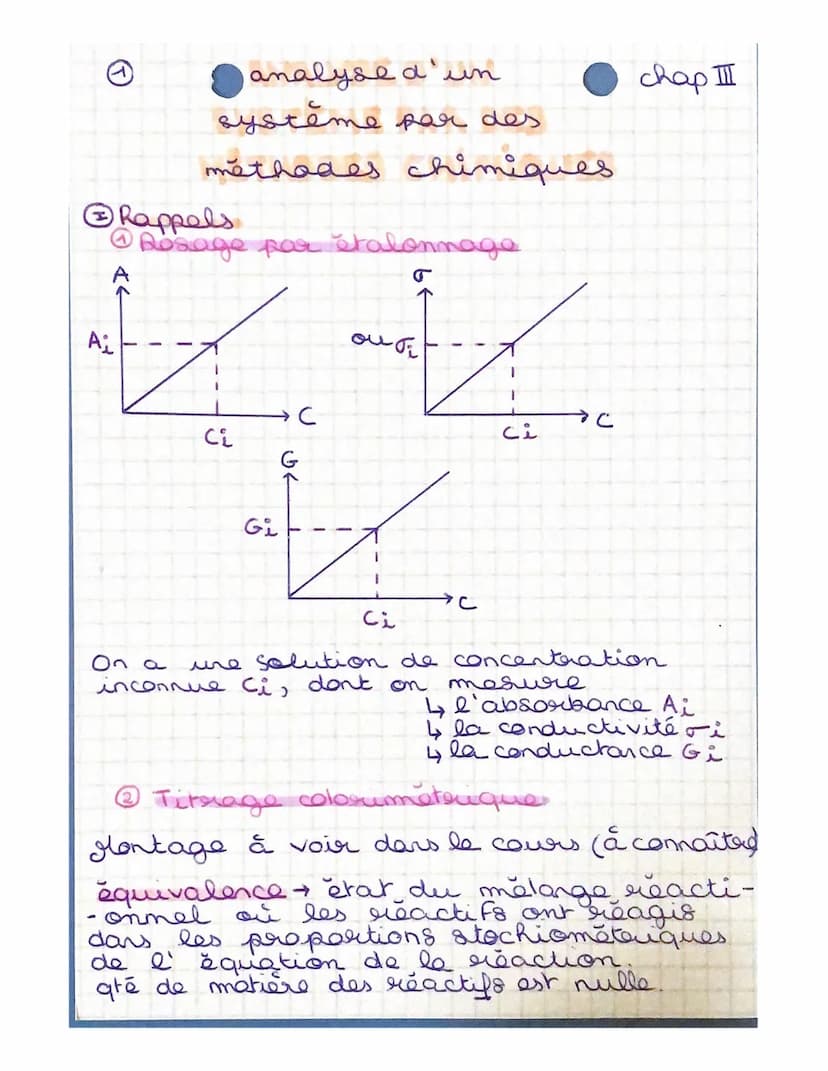 ① analyse d'un chap III
système par des
méthodes chimiques
Ⓘ Rappels
① Dosage par étalonnage
A
Ai
C
Ci
σ
ou σi
C
Ci
G
Gi
C
Ci
On a une solution de concentration
inconnue Ci, dont on mesure
↳ l'absorbance Ai
↳ la conductivité σi
↳ la conductance Gi
② Titrage colorimétrique
Montage à voir dans le cours (à connaître)
équivalence → état du mélange réacti-
-onnel où les réactifs ont réagis
dans les proportions stochiométriques
de l'équation de la réaction.
qté de matière des réactifs est nulle.